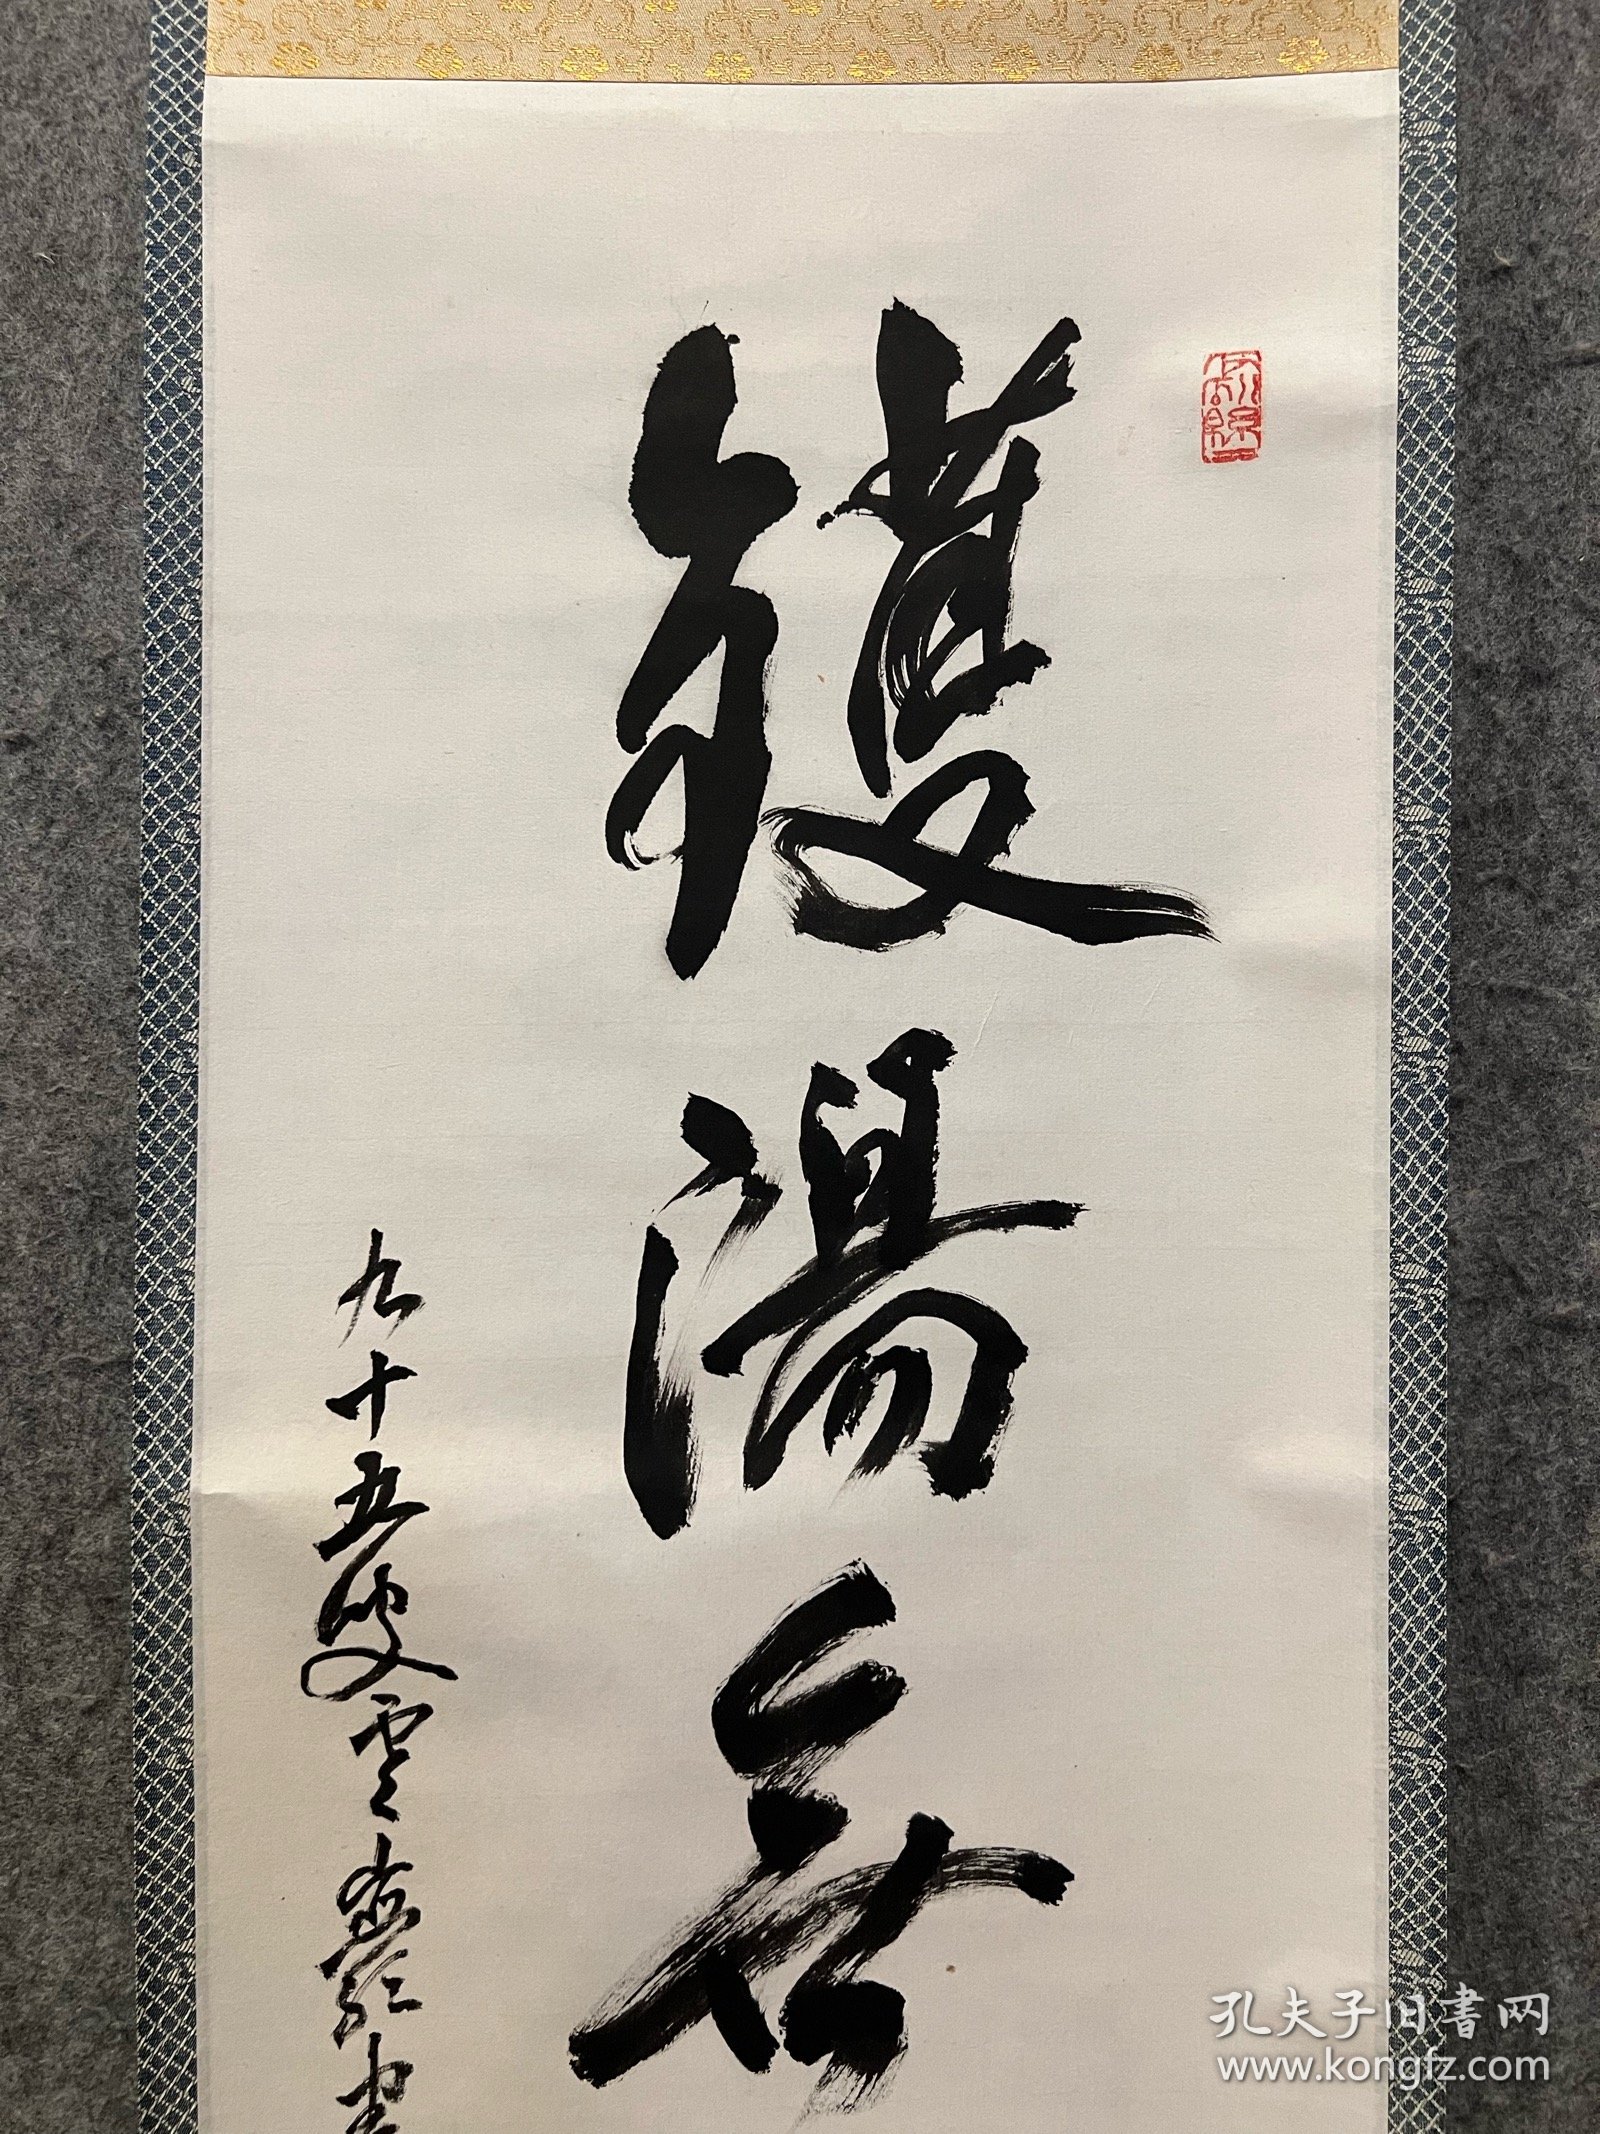 鑊湯無
九十五叟雲書
孔夫子旧書网
www.kongfz.com